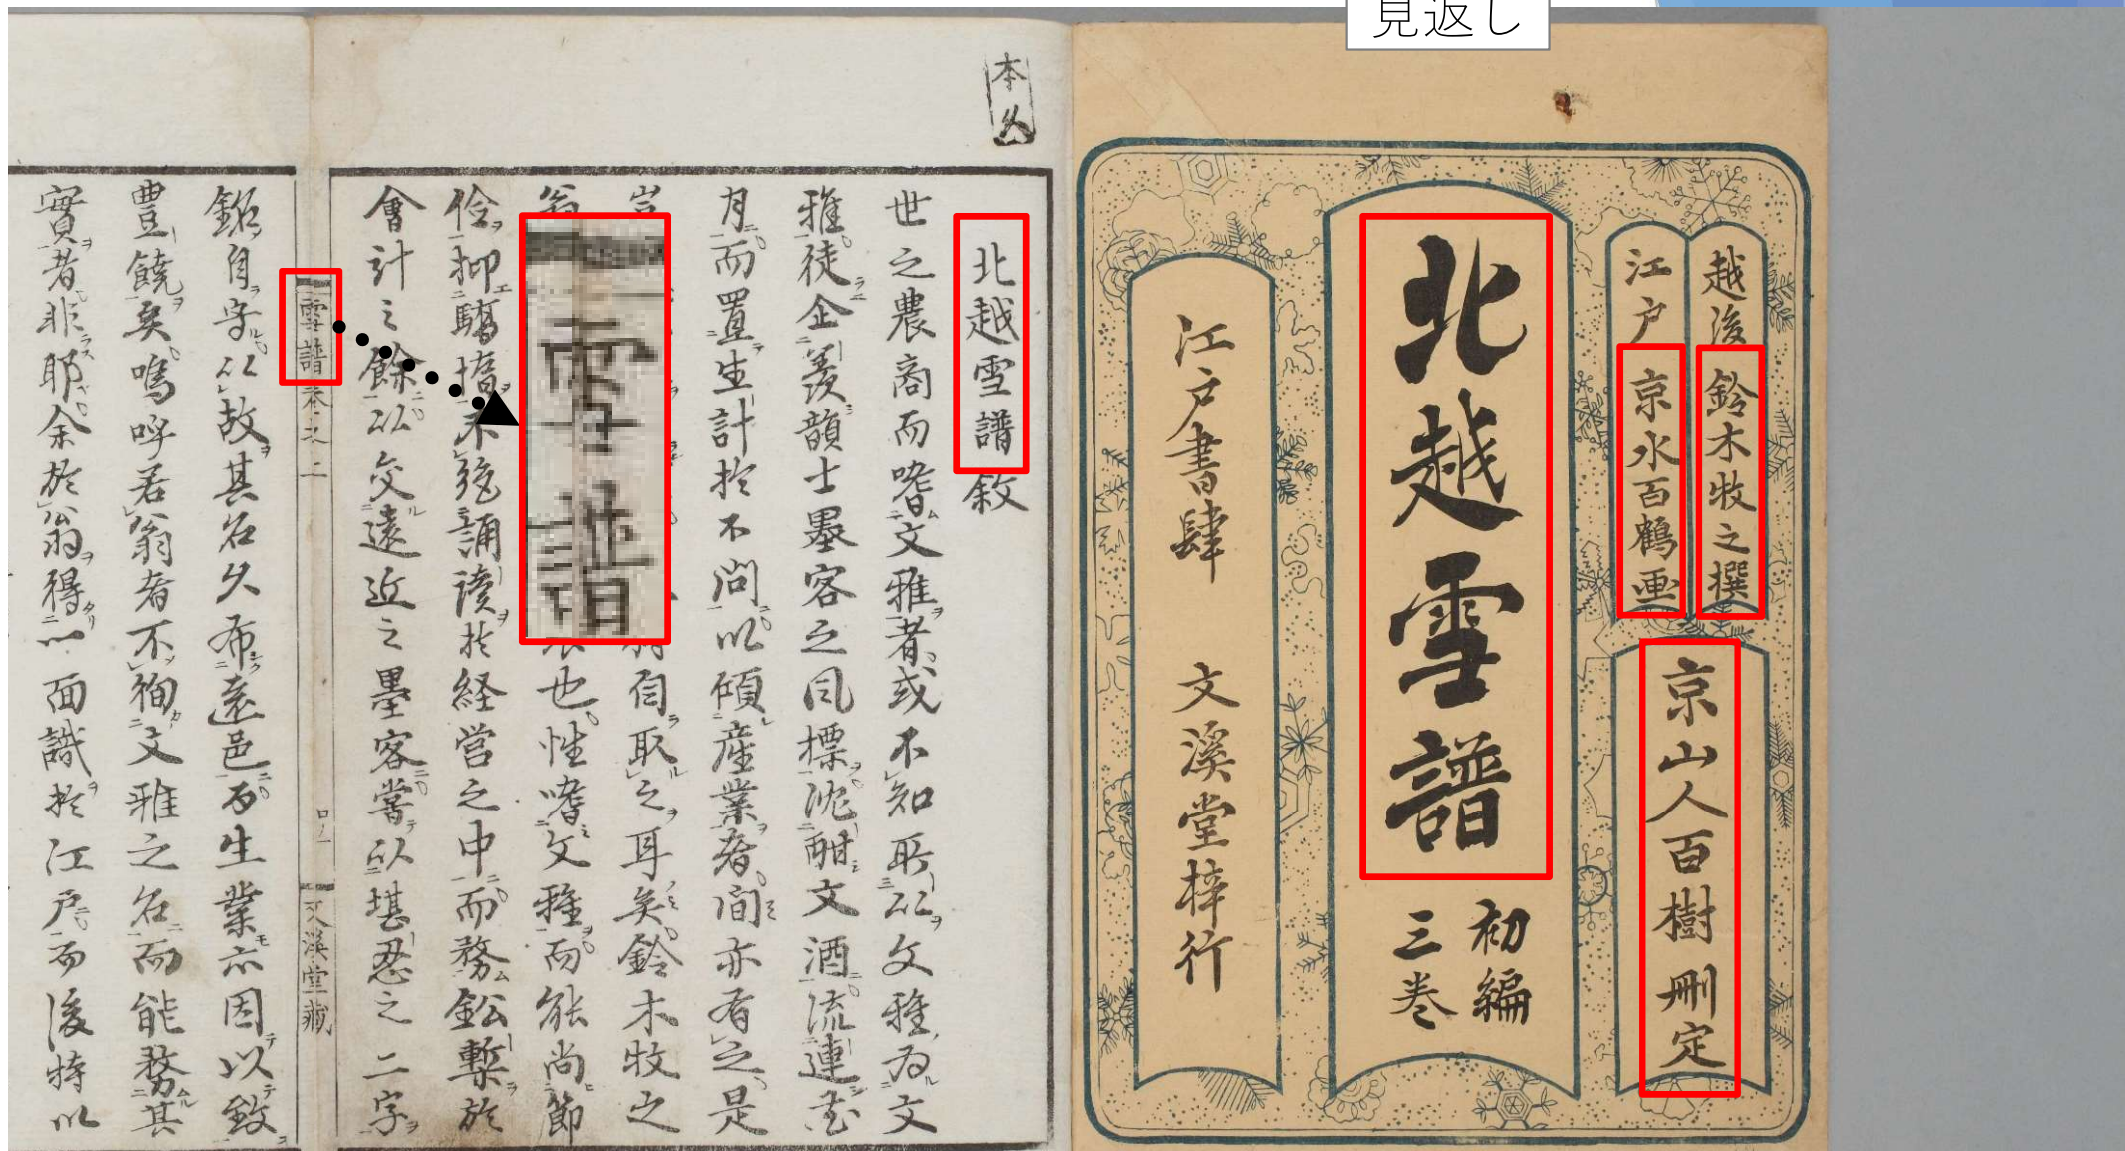 見返し
越後
鈴木牧之撰
江戸
京水百鶴画
京山人百樹刪定
北越雪譜
初編
三巻
江戸書肆 文溪堂梓行
本
北越雪譜敘
世之農商而嗜文雅者或不知取以文雅為文
雅徒企羨韻士墨客之風標沈酣文酒流連
月而置生計於不問以傾産業者間亦有之是
豈 自取之耳矣鈴木牧之
翁 也性嗜文雅而能尚節
儉抑驕惰不絶誦讀於経営之中而務鉛槧於
會計之餘以交遠近之墨客嘗以堪忍之二字
雪譜
雪譜巻之二
文溪堂藏
銘自守以故其名久布遠邑而生業亦因以致
豊饒矣嗚呼若翁者不徇文雅之名而能務其
實者非耶余於翁得一面識於江戸而後特以